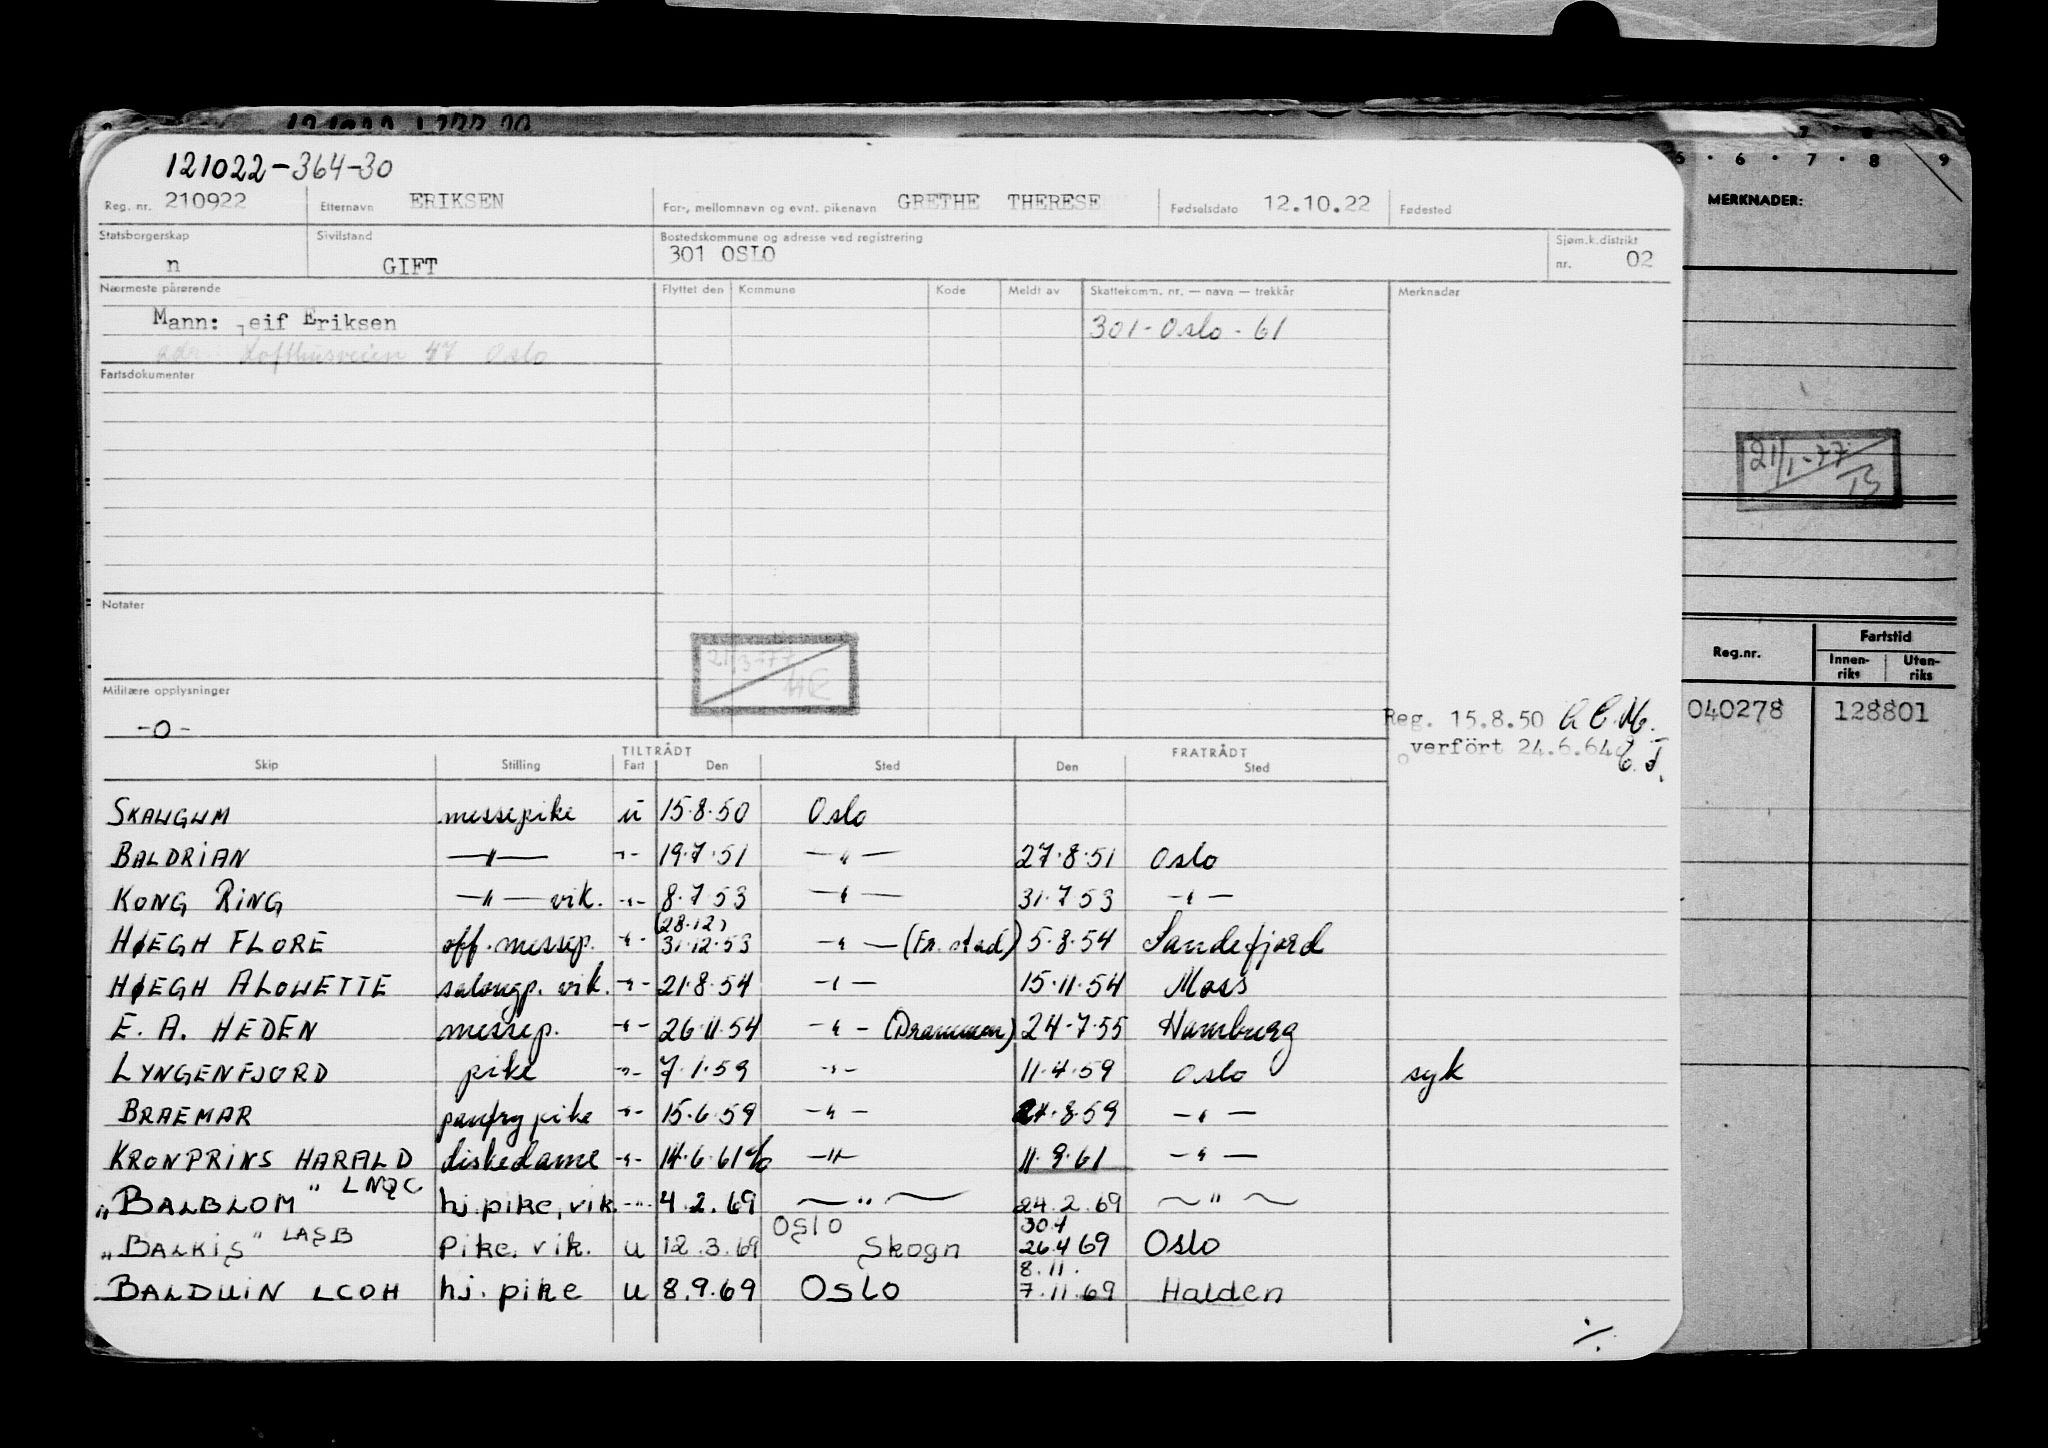 121022-364-30
Reg. nr. 210922 Etternavn ERIKSEN For-, mellomnavn og evnt. pikenavn GRETHE THERESE Fødselsdato 12.10.22 Fødested
Statsborgerskap n Sivilstand GIFT Bostedskommune og adresse ved registrering 301 OSLO Sjøm.k.distrikt nr. 02
Nærmeste pårørende Flyttet den Kommune Kode Meldt av Skattekomm. nr. — navn — trekkår Merknader
Mann: eif Eriksen 301-Oslo-61
adr Lofthusveien 47 Oslo
Fartsdokumenter
Notater
21/3-77
HR
Militære opplysninger
-0-
Reg. 15.8.50
verfört 24.6.64
TILTRÅDT FRATRÅDT
Skip Stilling Fart Den Sted Den Sted
SKAUGUM messepike u 15.8.50 Oslo
BALDRIAN —"— -"- 19.7.51 —"— 27.8.51 Oslo
KONG RING —"— vik. -"- 8.7.53 —"— 31.7.53 —"—
(28.12)
HØEGH FLORE off. messep. -"- 31.12.53 —"— (Fr.stad) 5.8.54 Sandefjord
HØEGH ALOUETTE salongp. vik. -"- 21.8.54 —"— 15.11.54 Moss
E. A. HEDEN messep. -"- 26.11.54 —"— (Drammen) 24.7.55 Hamburg
LYNGENFJORD pike -"- 7.1.59 -"- 11.4.59 Oslo syk
BRAEMAR pantrypike -"- 15.6.59 —"— 24.8.59 —"—
KRONPRINS HARALD diskedame -"- 14.6.61 —"— 11.9.61 —"—
„BALBLOM" LNQC hj.pike, vik. -"- 4.2.69 —"— 24.2.69 —"—
Oslo 30.4
„BALKIS" LASB Pike, vik. u 12.3.69 Skogn 26.4 69 Oslo
8.11.
BALDUIN LCOH hj. pike u 8.9.69 OSLO 7.11.69 Halden
./.
5 · 6 · 7 · 8 9
MERKNADER:
21/1-77
Reg.nr. Fartstid
Innenriks Utenriks
040278 128801